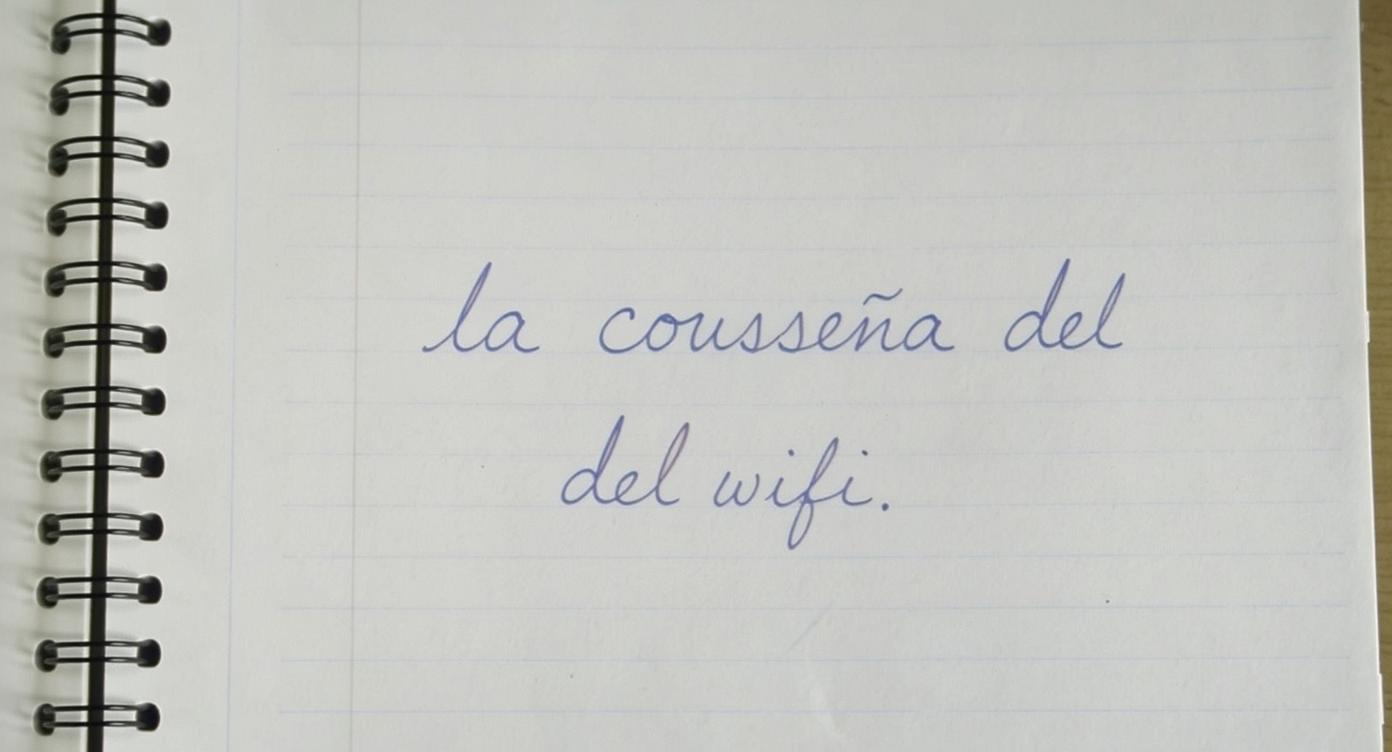 la cousseña del
del wifi.